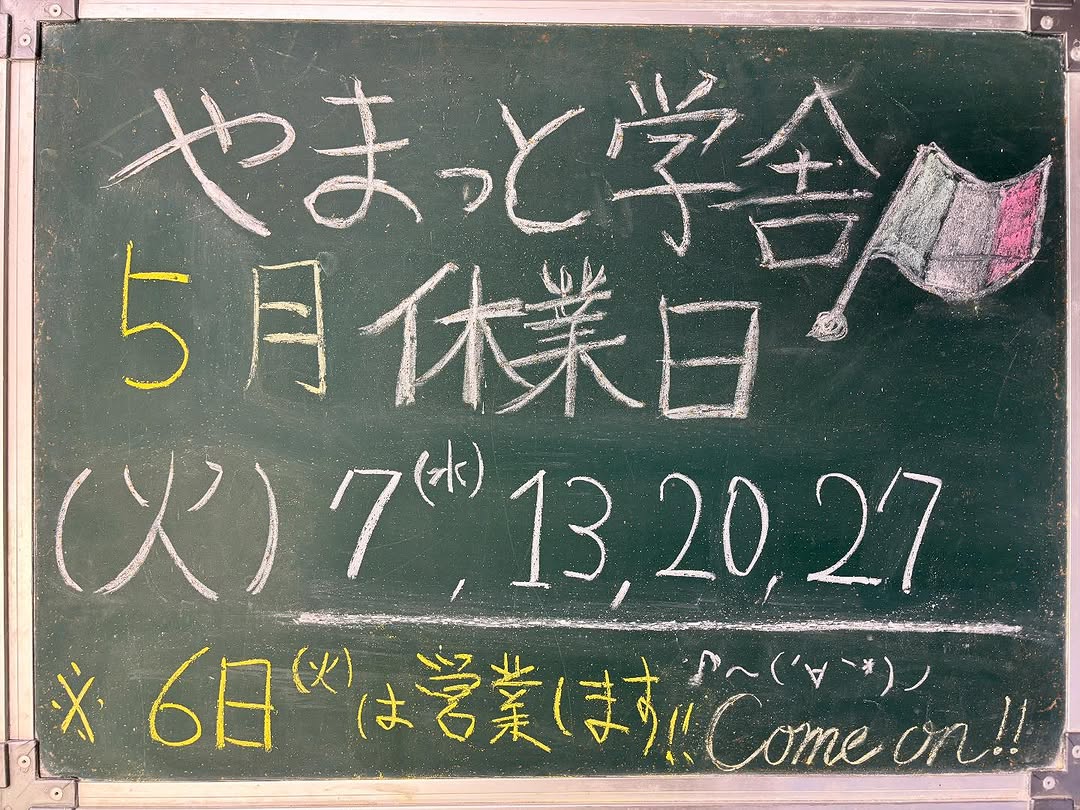 やまっと学舎
5月休業日
(火) 7(水), 13, 20, 27
※ 6日(火)は営業します!! ♪〜(´∀`*)ノ
Come on!!